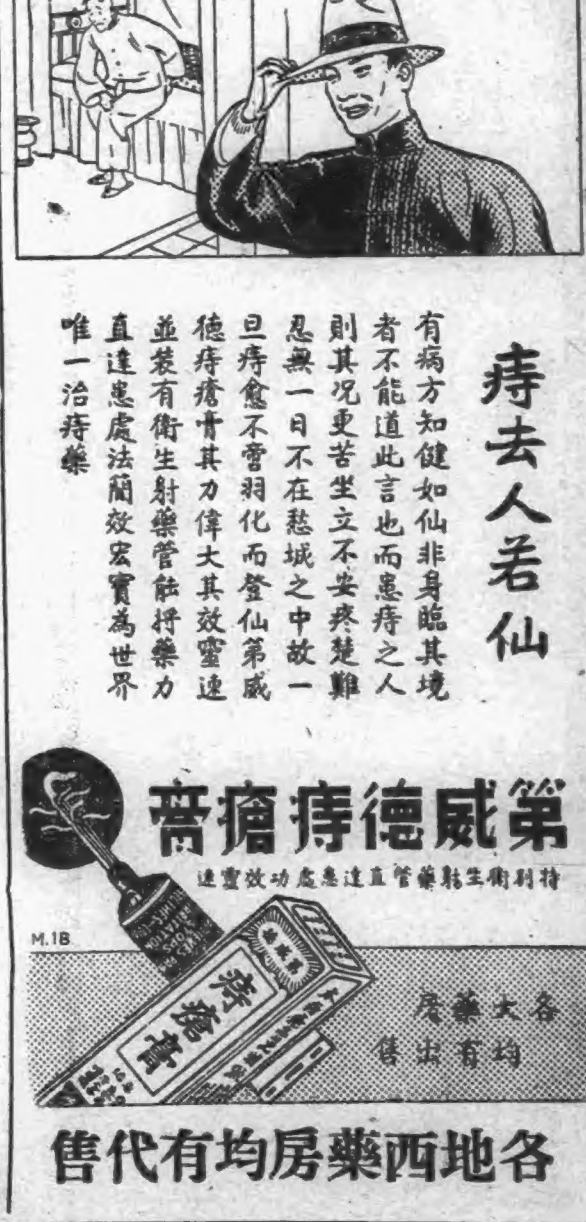 痔去人若仙
有病方知健如仙非身臨其境
者不能道此言也而患痔之人
則其況更苦坐立不安疼楚難
忍無一日不在愁城之中故一
旦痔愈不啻羽化而登仙第威
德痔瘡膏其力偉大其效靈速
並裝有衛生射藥管能將藥力
直達患處法簡效宏實為世界
唯一治痔藥
第威德痔瘡膏
特別衛生射藥管直達患處功效靈速
M.1B
痔瘡膏
各大藥房
均有出售
各地西藥房均有代售